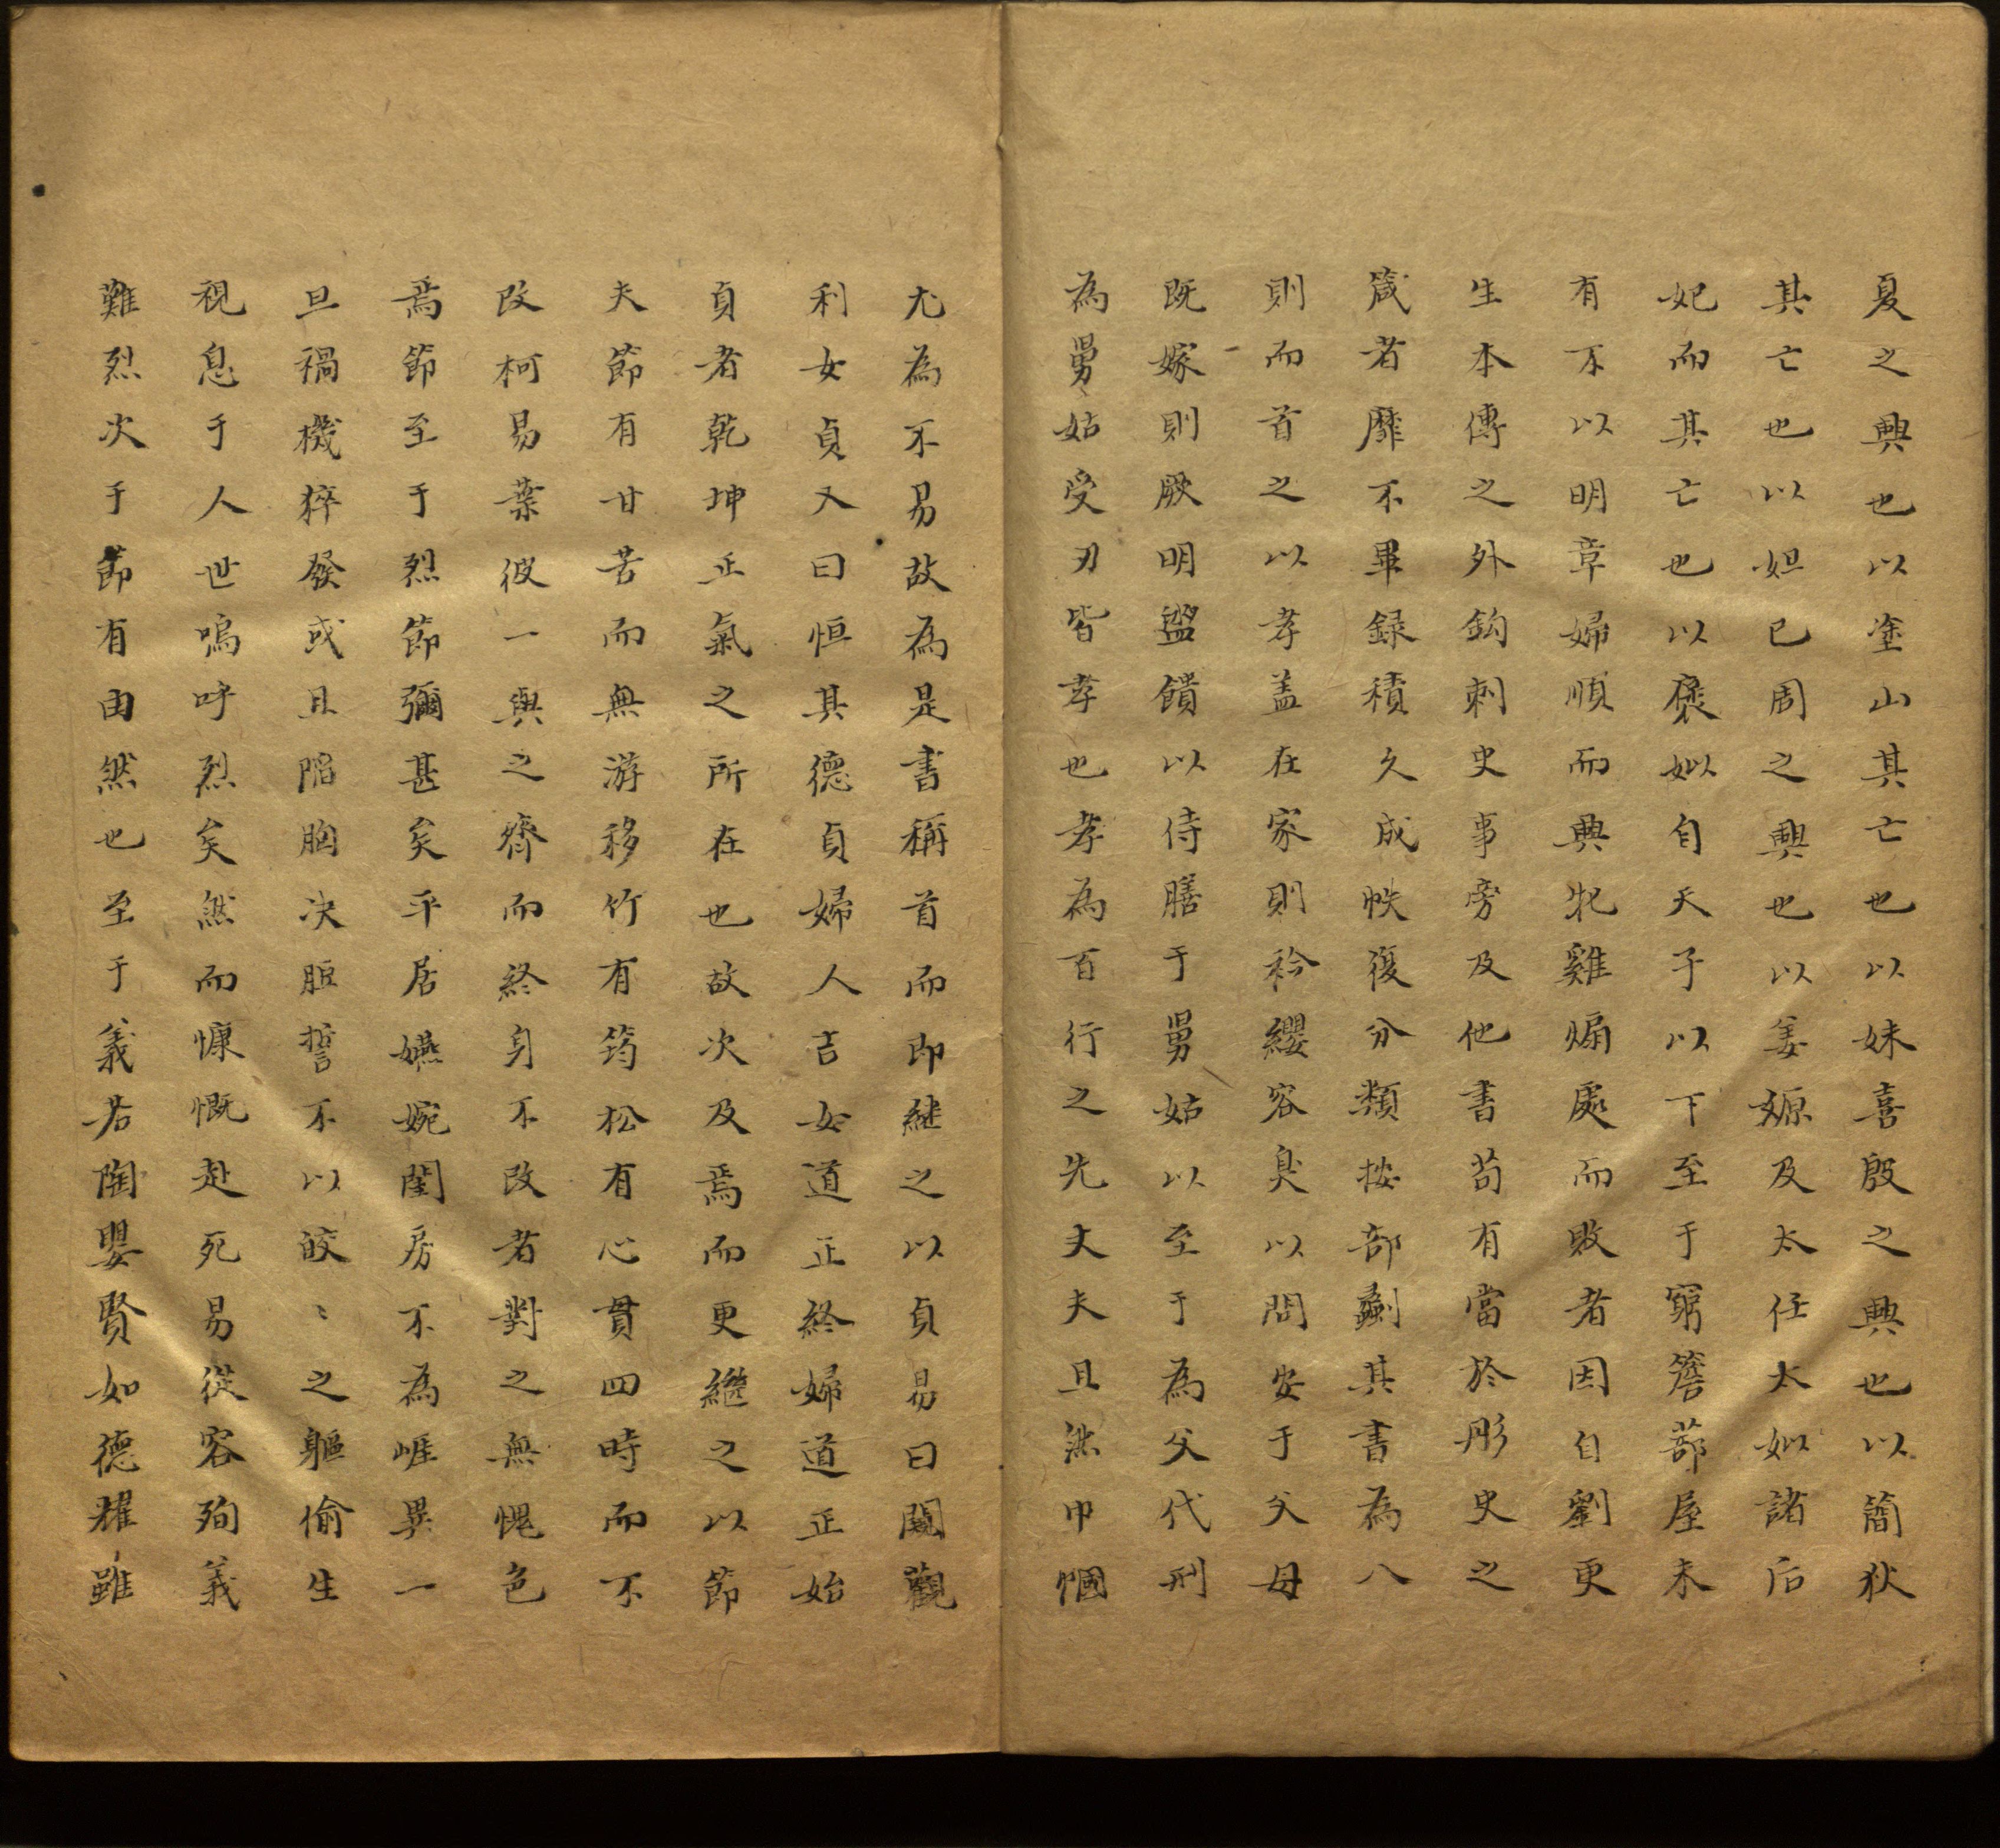 夏之興也以塗山其亡也以妹喜殷之興也以簡狄
其亡也以妲已周之興也以姜嫄及太任太姒諸后
妃而其亡也以褒姒自天子以下至于窮簷蔀屋未
有不以明章婦順而興牝雞煽處而敗者因自劉更
生本傳之外鈎刺史事旁及他書苟有當於彤史之
箴者靡不畢録積久成帙復分類按部劙其書為八
則而首之以孝盖在家則衿纓容臭以問安于父母
既嫁則厥明盥饋以侍膳于舅姑以至于為父代刑
為舅姑受刃皆孝也孝為百行之先丈夫且然巾幗
尤為不易故為是書稱首而即継之以貞易曰闚觀
利女貞又曰恒其德貞婦人吉女道正終婦道正始
貞者乾坤正氣之所在也故次及焉而更繼之以節
夫節有甘苦而無游移竹有筠松有心貫四時而不
改柯易葉彼一與之齊而終身不改者對之無愧色
焉節至于烈節彌甚矣平居嬿婉閨房不為崖異一
旦禍機猝發或且陷胸决脰誓不以皎〻之軀偷生
視息于人世嗚呼烈矣然而慷慨赴死易從容殉義
難烈次于節有由然也至于義若陶嬰賢如德耀雖